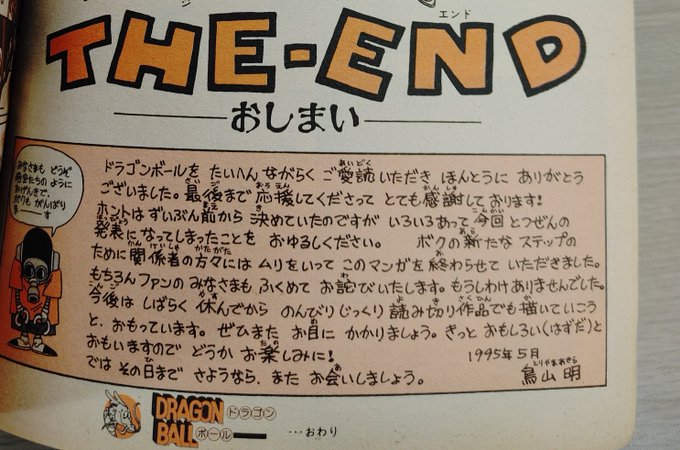 エンド
THE-END
おしまい
みなさまも どうぞ
悟空たちのように
おげんきで。
ボクも がんばり
まーーす
ドラゴンボールを たいへん ながらく ご愛読いただき ほんとうに ありがとう
ございました。最後まで応援してくださって とても感謝しております!
ホントは ずいぶん前から 決めていたのですが いろいろあって 今回 とつぜんの
発表に なってしまったことを おゆるしください。 ボクの新たな ステップの
ために 関係者の方々には ムリをいって このマンガを 終わらせて いただきました。
もちろん ファンの みなさまも ふくめて お詫びいたします。もうしわけ ありませんでした。
今後は しばらく 休んでから のんびり じっくり 読み切り作品でも 描いていこう
と、おもっています。 ぜひまた お目に かかりましょう。きっと おもしろい(はずだ)と
おもいますので どうか お楽しみに!
では その日まで さようなら、また お会いしましょう。
1995年5月
とりやまあきら
鳥山 明
DRAGON ドラゴン
BALL ボール
…おわり